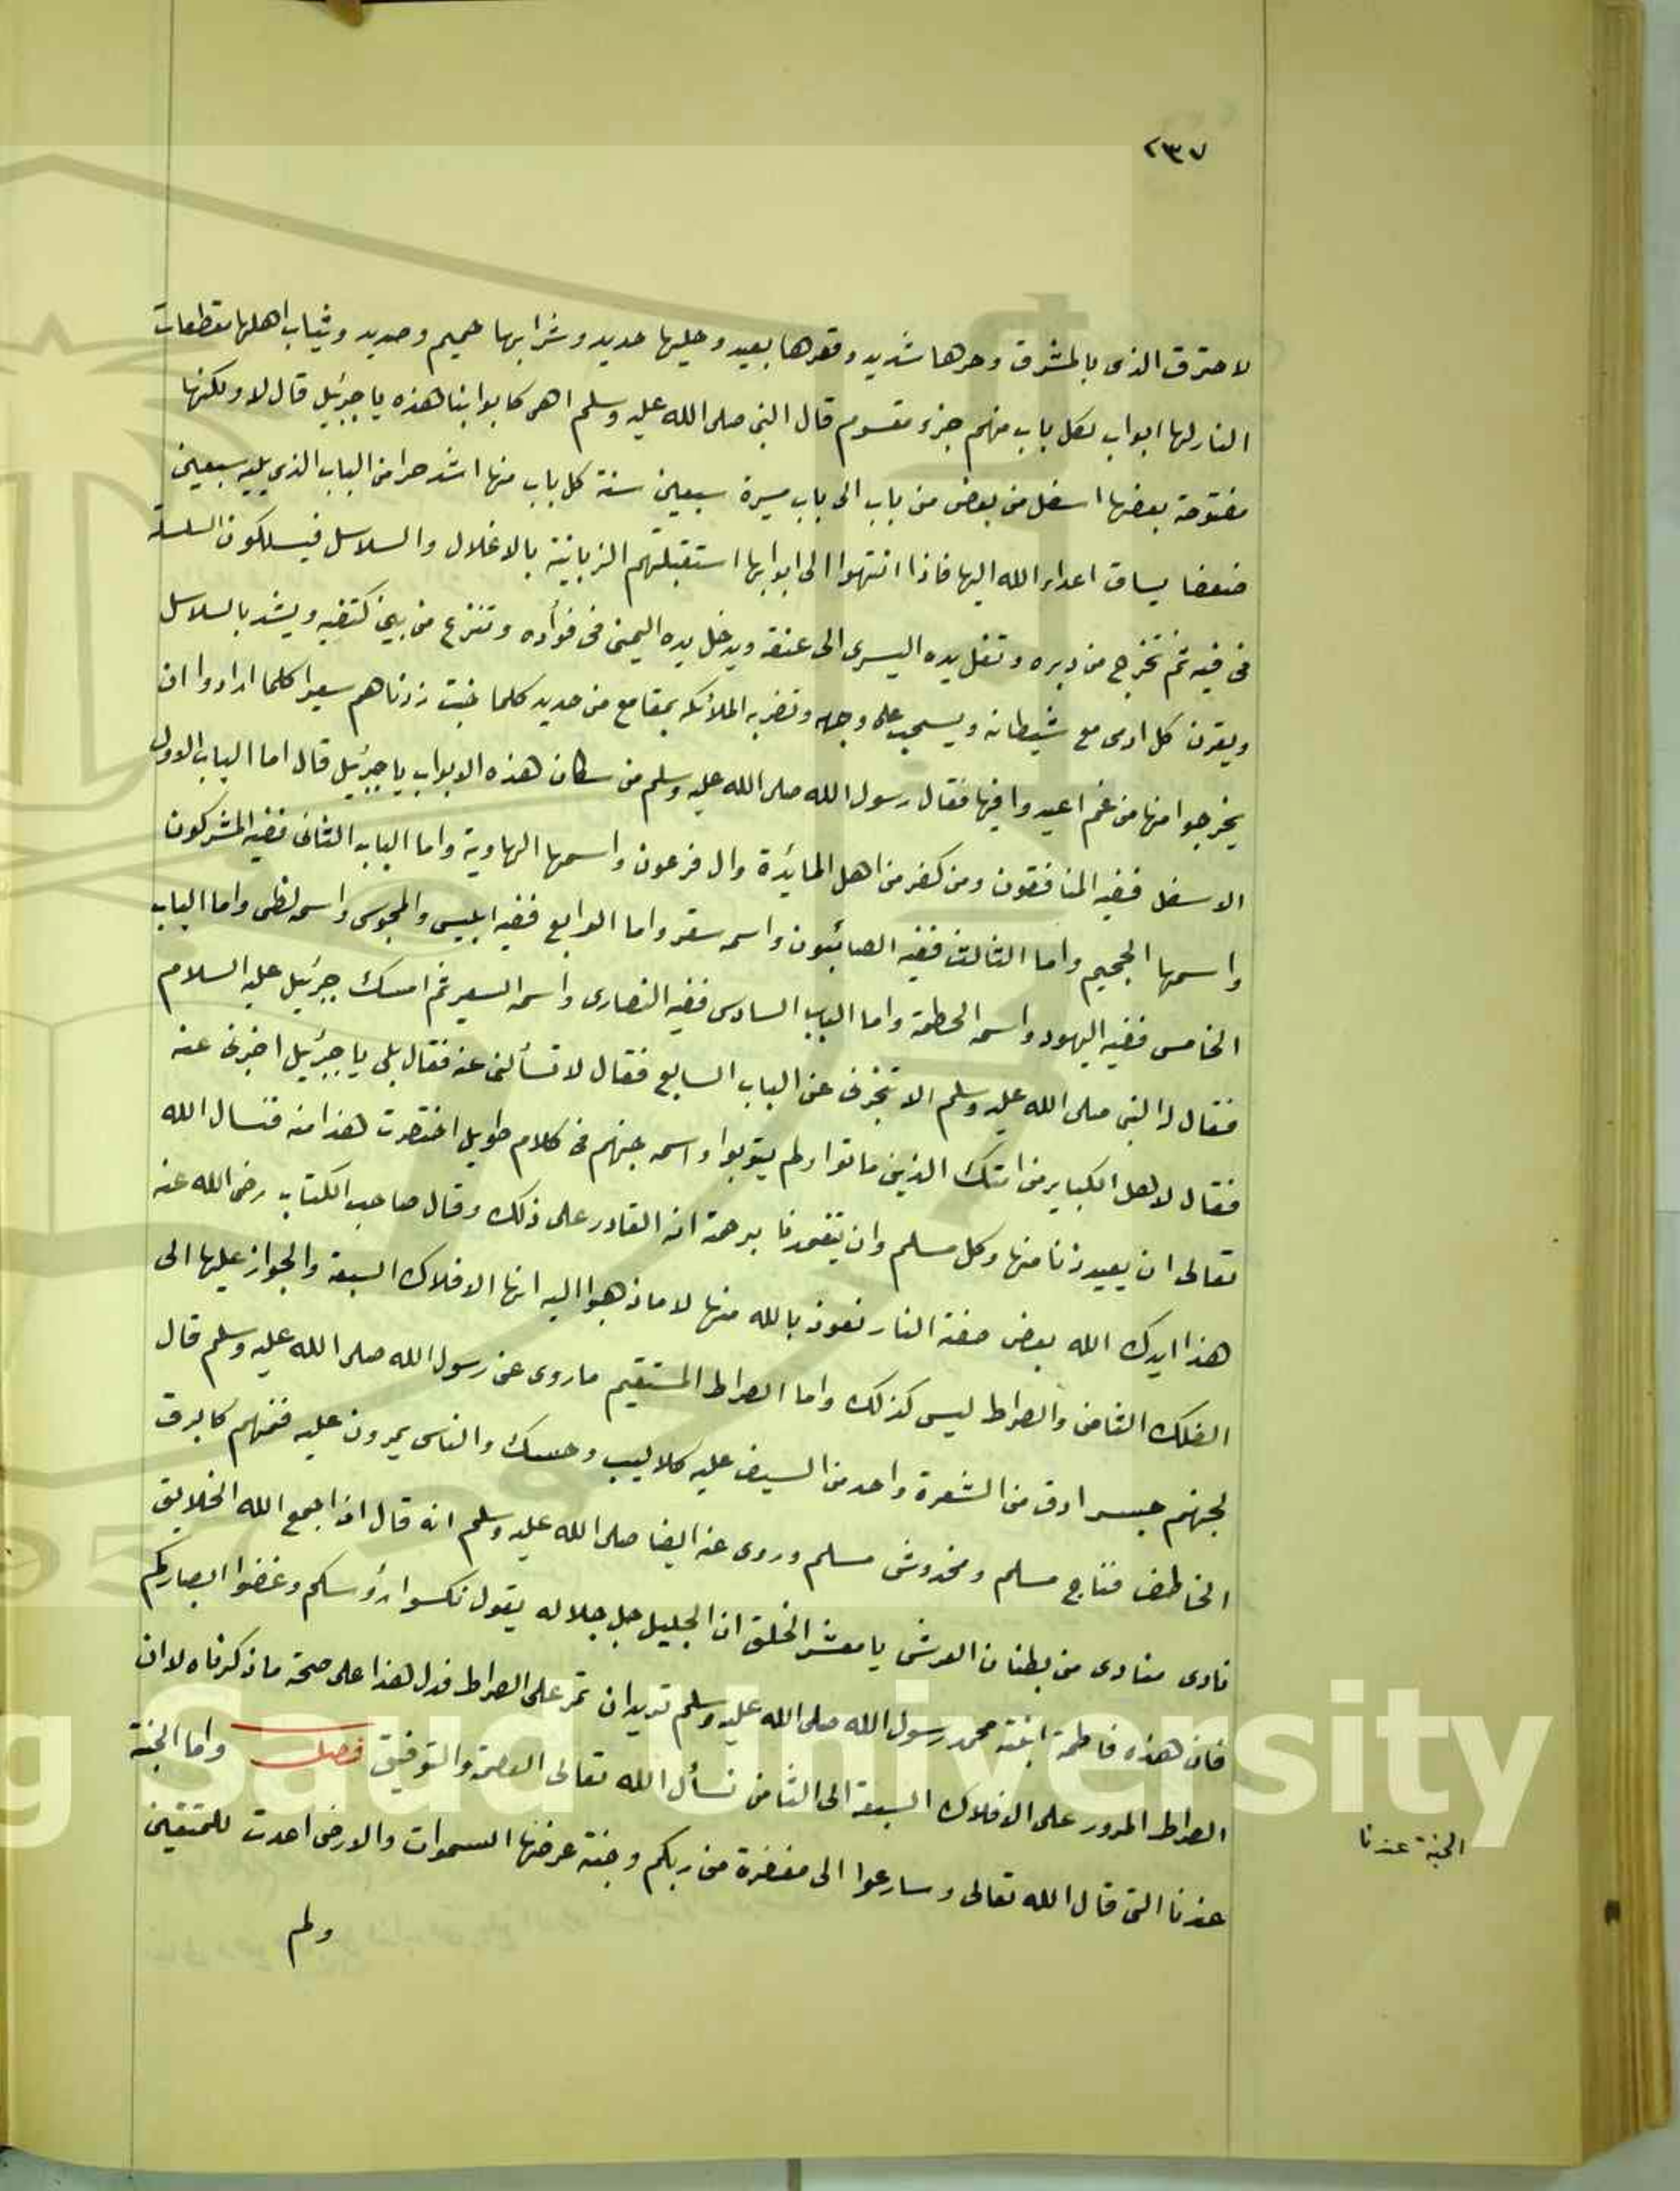 ٢٣٧
لاحترق الذى بالمشرق وحرها شديد وقعرها بعيد وحليها حديد وشرابها حميم وصديد وثياب اهلها مقطعات
النار لها ابواب لكل باب منهم جزء مقسوم قال النبى صلى الله عليه وسلم اهى كابوابنا هذه يا جبرئيل قال لا ولكنها
مفتوحة بعضها اسفل من بعض من باب الى باب مسيرة سبعين سنة كل باب منها اشد حرا من الباب الذى يليه سبعين
ضعفا يساق اعداء الله اليها فاذا انتهوا الى ابوابها استقبلتهم الزبانية بالاغلال والسلاسل فيسلكون السلسلة
فى فيه ثم تخرج من دبره وتغل يده اليسرى الى عنقه ويدخل يده اليمنى فى فوأده وتنزع من بين كتفيه ويشد بالسلاسل
ويقرن كل ادمى مع شيطانه ويسحب على وجهه وتضربه الملائكة بمقامع من حديد كلما خبت زدناهم سعيرا كلما ارادوا ان
يخرجوا منها من غم اعيدوا فيها فقال رسول الله صلى الله عليه وسلم من سكان هذه الابواب يا جبرئيل قال اما الباب الاول
الاسفل ففيه المنافقون ومن كفر من اهل المائدة وال فرعون واسمها الهاوية واما الباب الثانى ففيه المشركون
واسمها الجحيم واما الثالث ففيه الصائبون واسمه سقر واما الرابع ففيه ابليس والمجوس واسمه لظى واما الباب
الخامس ففيه اليهود واسمه الحطمة واما الباب السادس ففيه النصارى واسمه السعير ثم امسك جبرئيل عليه السلام
فقال له النبى صلى الله عليه وسلم الا تخبرنى عن الباب السابع فقال لا تسألنى عنه فقال بلى يا جبرئيل اخبرنى عنه
فقال لاهل الكباير من امتك الذين ماتوا ولم يتوبوا واسمه جهنم فى كلام طويل اختصرت هذا منه فنسال الله
تعالى ان يعيذنا منها وكل مسلم وان يتغمدنا برحمته انه القادر على ذلك وقال صاحب الكتاب رضى الله عنه
هذا ايدك الله بعض صفة النار نعوذ بالله منها لا ما ذهبوا اليه انها الافلاك السبعة والجواز عليها الى
الفلك الثامن والصراط ليس كذلك واما الصراط المستقيم ما روى عن رسول الله صلى الله عليه وسلم قال
لجهنم جسر ادق من الشعرة واحد من السيف عليه كلاليب وحسك والناس يمرون عليه فمنهم كالبرق
الخاطف فناج مسلم ومخدوش مسلم وروى عنه ايضا صلى الله عليه وسلم انه قال اذا جمع الله الخلايق
نادى منادى من بطنان العرش يا معشر الخلق ان الجليل جل جلاله يقول نكسوا رؤسكم وغضوا ابصاركم
فان هذه فاطمة ابنة محمد رسول الله صلى الله عليه وسلم تريد ان تمر على الصراط فدل هذا على صحة ما ذكرناه لا ان
الصراط المرور على الافلاك السبعة الى الثامن نسأل الله تعالى العصمة والتوفيق فصل واما الجنة
عندنا التى قال الله تعالى وسارعوا الى مغفرة من ربكم وجنة عرضها السموات والارض اعدت للمتقين
ولم
الجنة عندنا
g Saud University